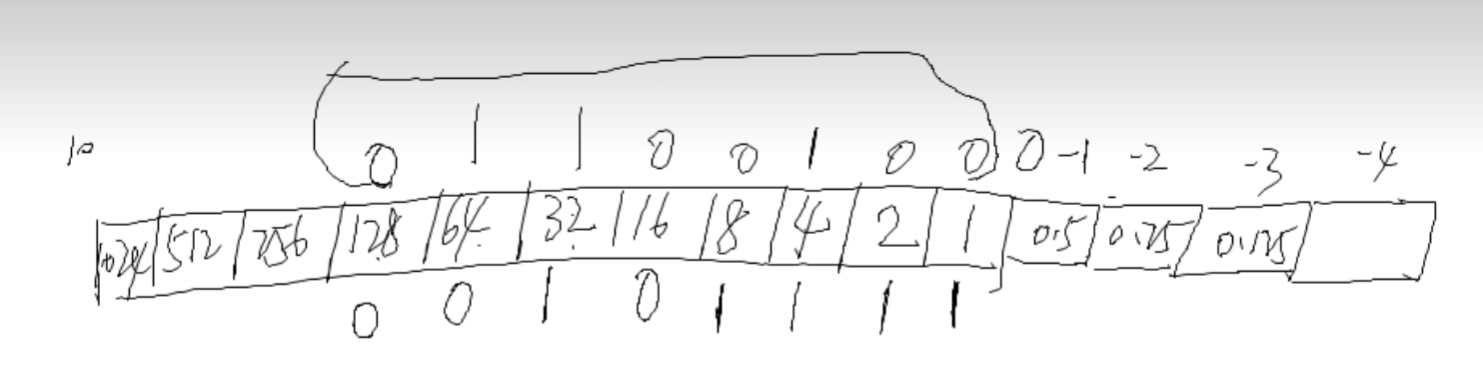 10 0 1 1 0 0 1 0 0 0 -1 -2 -3 -4
1024 512 256 128 64 32 16 8 4 2 1 0.5 0.25 0.125
0 0 1 0 1 1 1 1